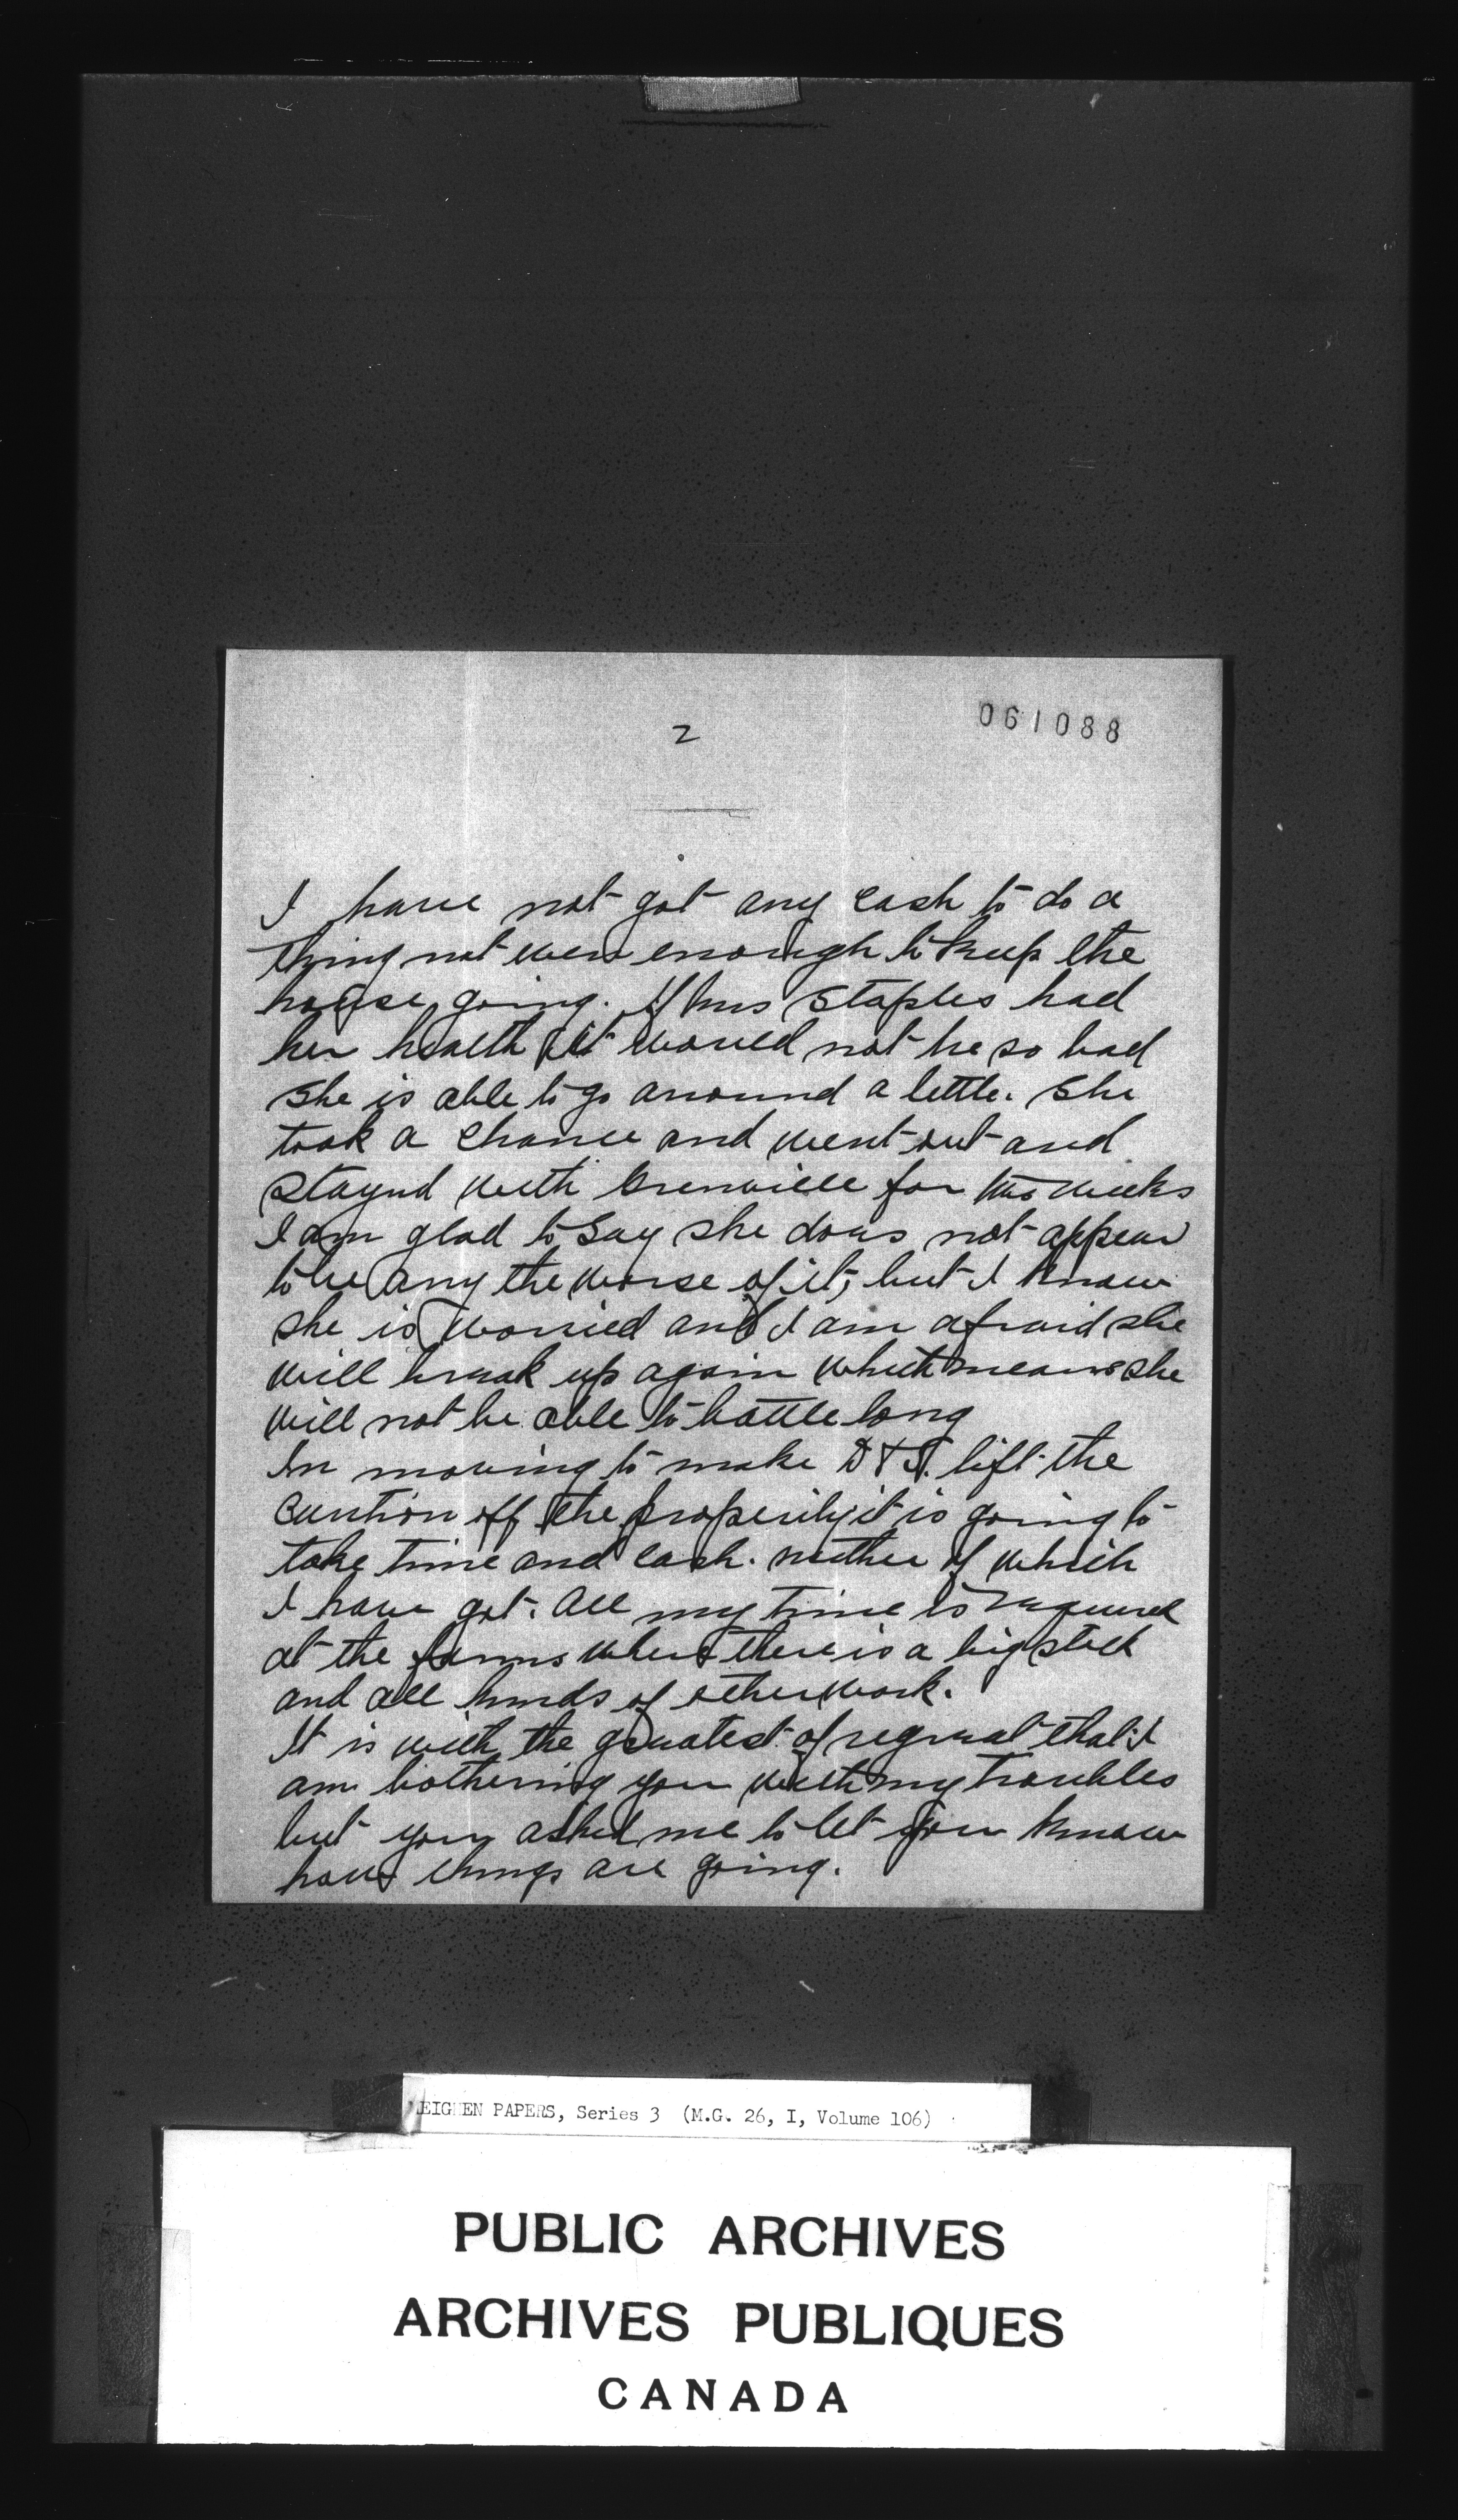 2
061088
I have not got any cash to do a
thing not even enough to keep the
house going. If Mrs Staples had
her health it would not be so bad
she is able to go around a little. She
took a chance and went out and
stayed with Grenville for two weeks
I am glad to say she does not appear
to be any the worse of it, but I know
she is worried and I am afraid she
will break up again which means she
will not be able to battle long
In moving to make D & S. lift the
caution off the property it is going to
take time and cash. neither of which
I have got. All my time is required
at the farms where there is a big stock
and all kinds of other work.
It is with the greatest of regreat that I
am bothering you with my troubles
but you asked me to let you know
how things are going.
MEIGHEN PAPERS, Series 3 (M.G. 26, I, Volume 106)
PUBLIC ARCHIVES
ARCHIVES PUBLIQUES
CANADA